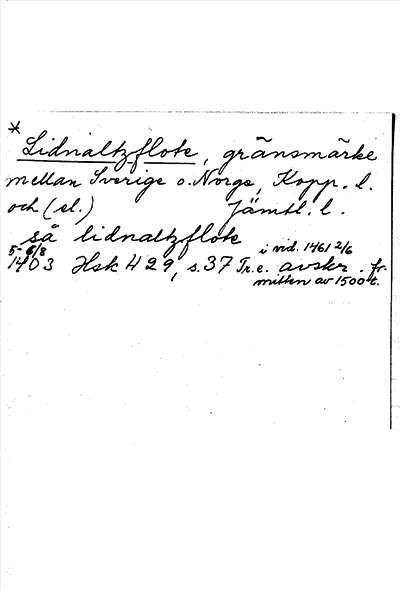 *
Lidnaltzflote, gränsmärke
mellan Sverige o. Norge, Kopp. l.
och (el.) Jämtl. l.
så lidnaltzflote
5-6/8 1403 Hsk H 29, s. 37 Tr. e. avskr. fr.
i vid. 1461 2/6
mitten av 1500 t.